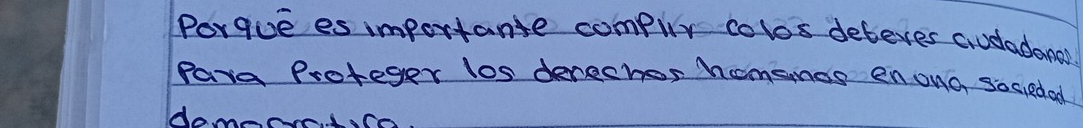 Porquē es importante complir colos deteres ciudadanos.
Para Proteger los derechos homanos en ona sosiedad
democratica.